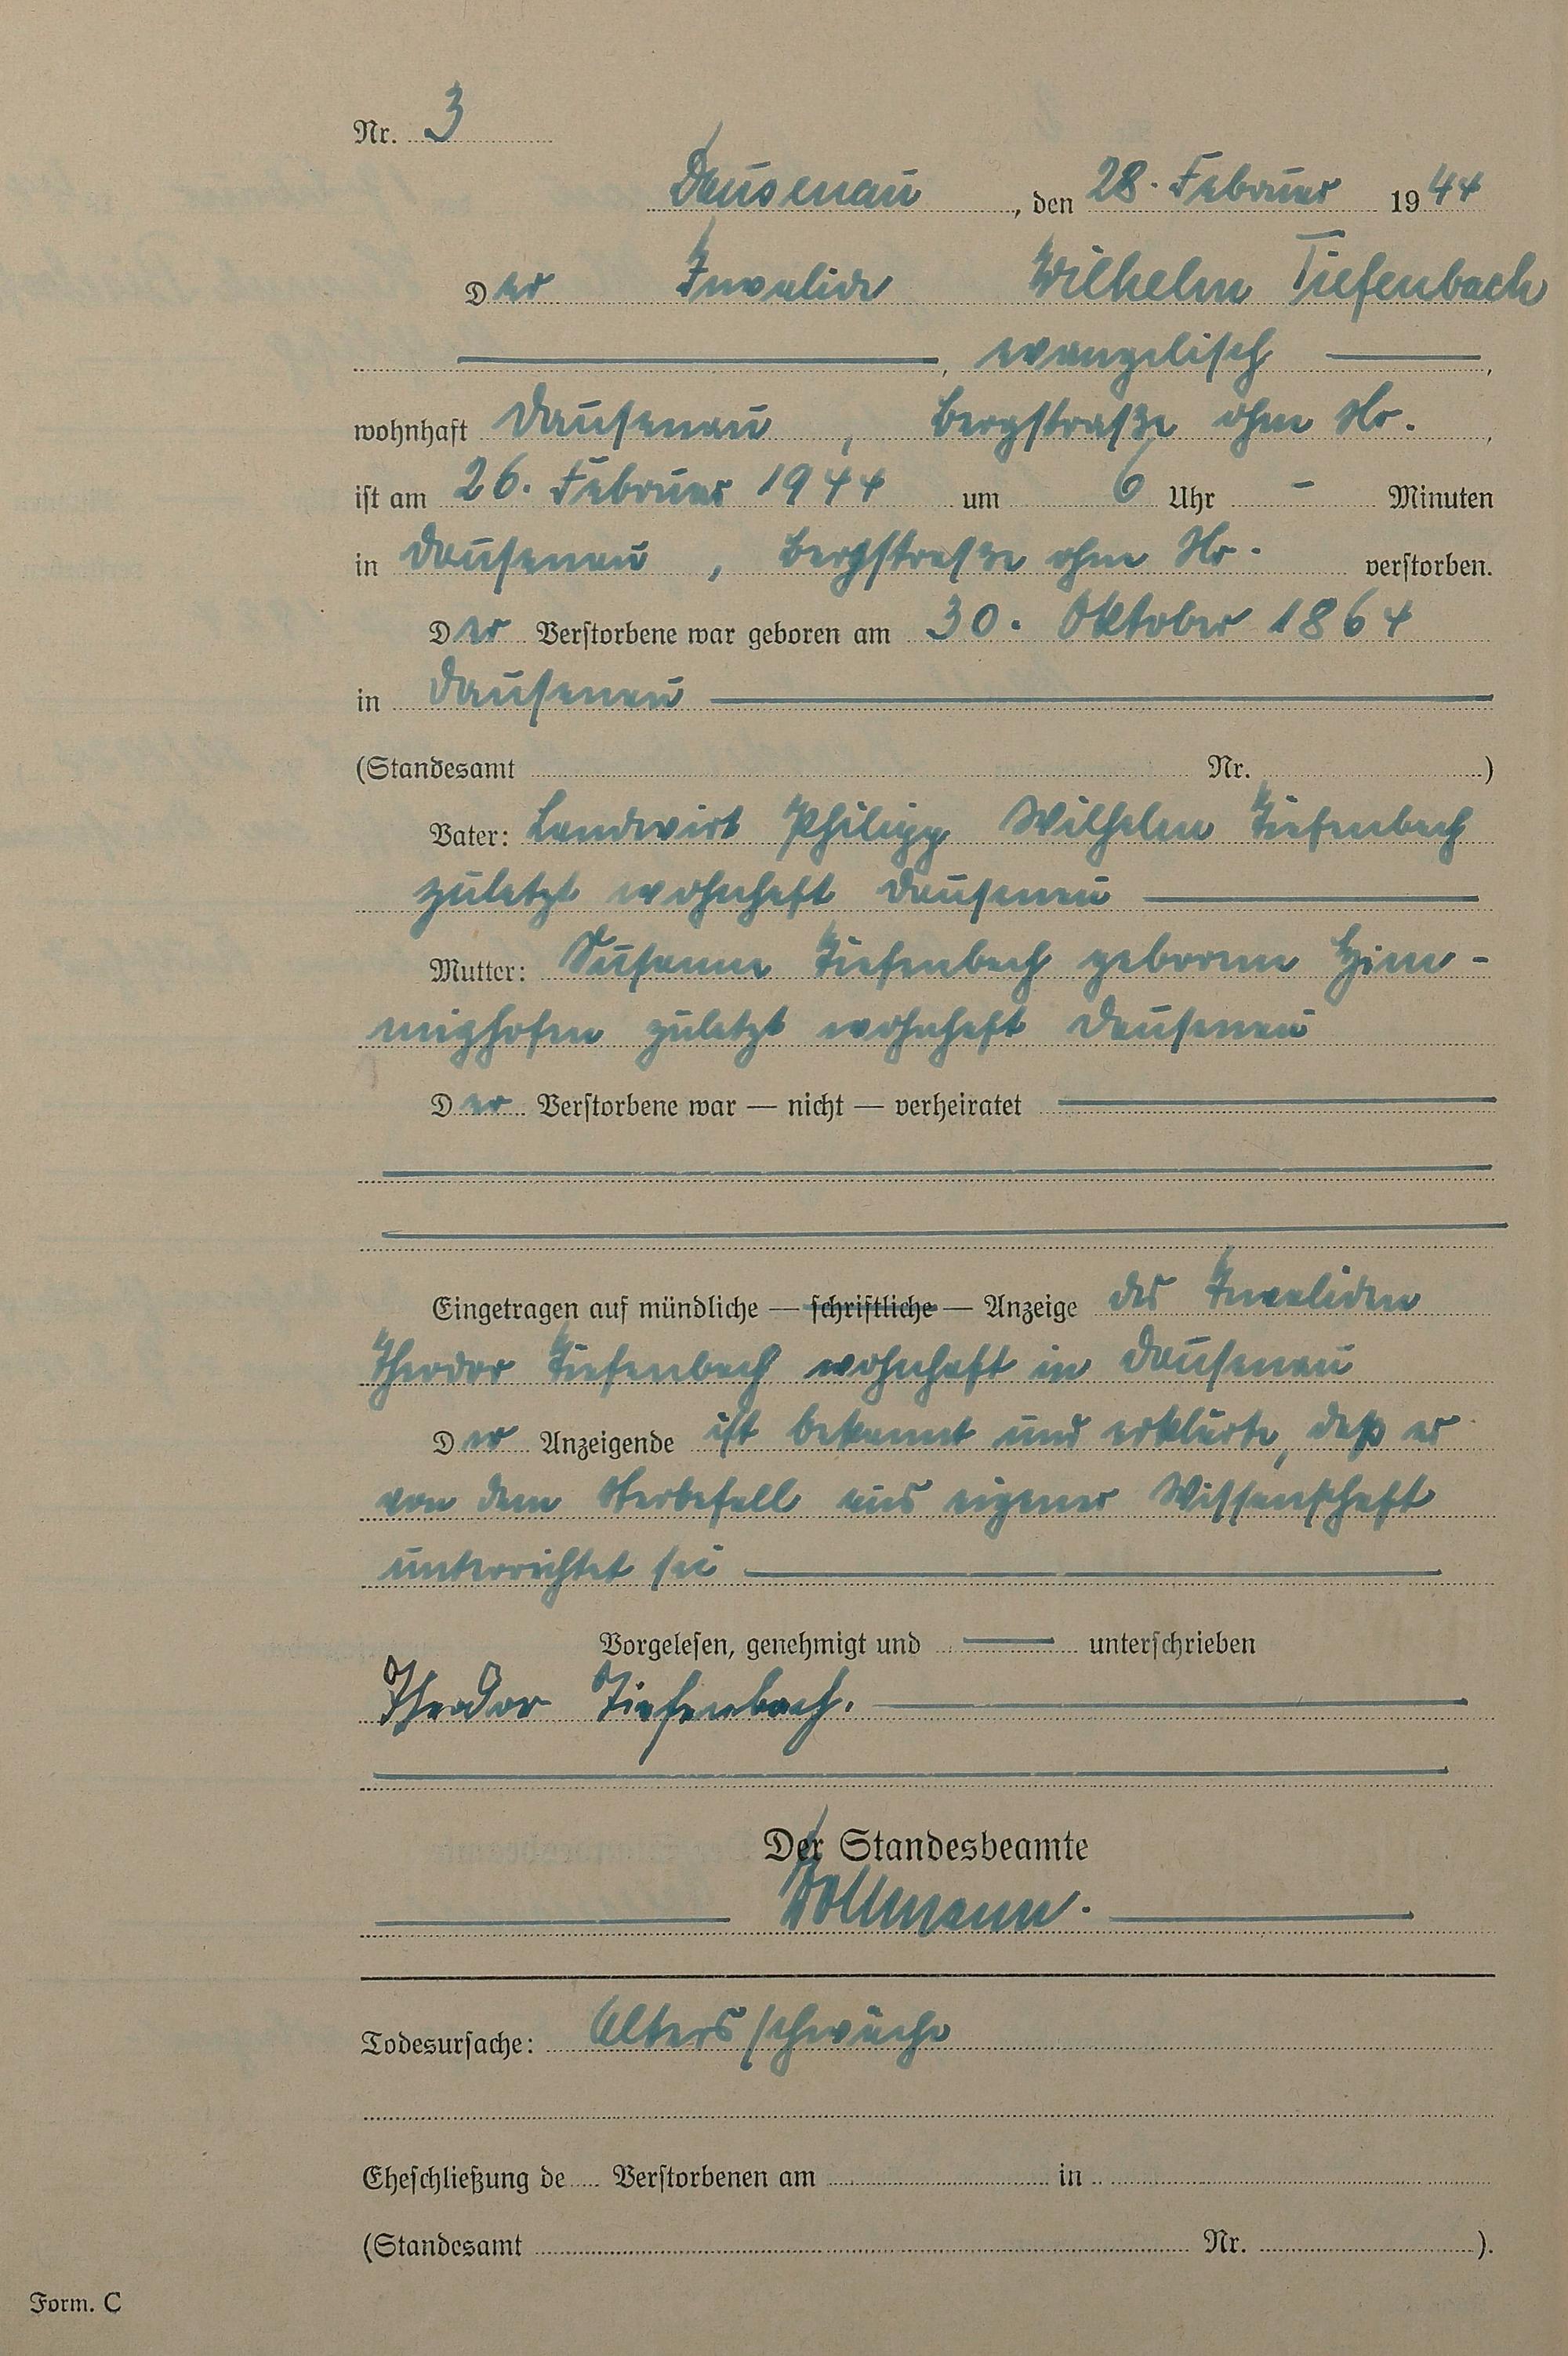 Nr. 3
Dausenau, den 28. Februar 1944
Der Invalide Wilhelm Tiefenbach
, evangelisch ,
wohnhaft Dausenau, Bergstraße ohne Nr. ,
ist am 26. Februar 1944 um 6 Uhr - Minuten
in Dausenau, Bergstraße ohne Nr. verstorben.
Der Verstorbene war geboren am 30. Oktober 1864
in Dausenau
(Standesamt Nr. )
Vater: Landwirt Philipp Wilhelm Tiefenbach
zuletzt wohnhaft Dausenau
Mutter: Susanne Tiefenbach geborene Himmighofen
zuletzt wohnhaft Dausenau
Der Verstorbene war — nicht — verheiratet
Eingetragen auf mündliche — schriftliche — Anzeige des Invaliden
Theodor Tiefenbach wohnhaft in Dausenau
Der Anzeigende ist bekannt und erklärte, daß er
von dem Sterbefall aus eigener Wissenschaft
unterrichtet sei
Vorgelesen, genehmigt und unterschrieben
Theodor Tiefenbach.
Der Standesbeamte
Vollmann.
Todesursache: Altersschwäche
Eheschließung de Verstorbenen am in
(Standesamt Nr. ).
Form. C